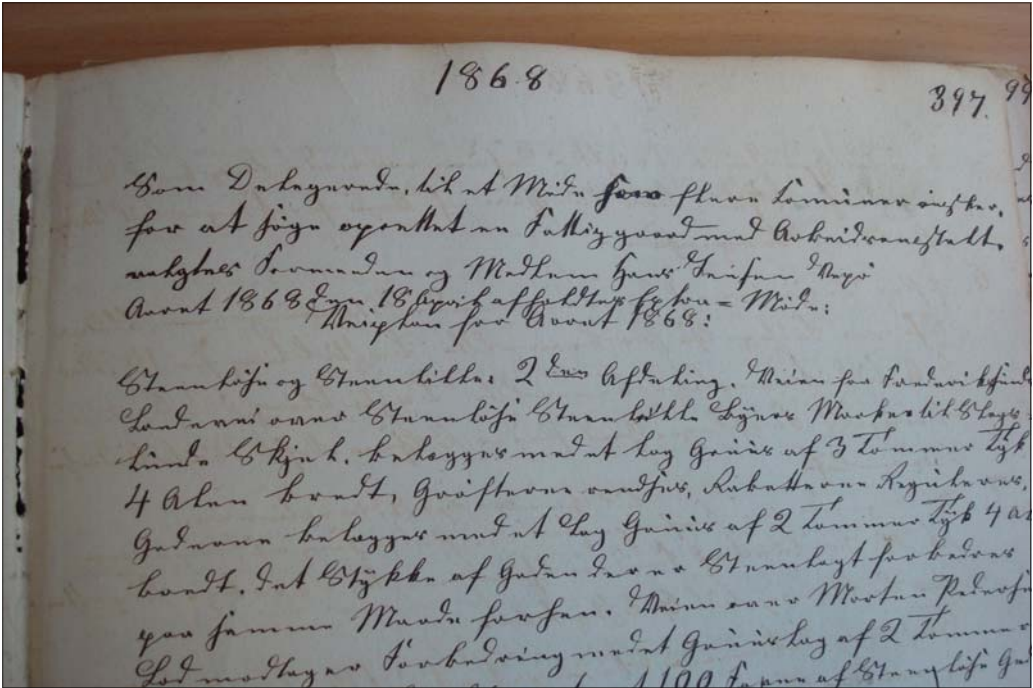 1868
397.
99
Som Delegerede, til et Møde som flere Comuner ønsker,
for at søge oprettet en Fattiggaard med Arbeidsanstalt,
valgtes Formanden og Medlem Hans Jensen Vexø
Aaret 1868 den 18 April afholdtes Extra= Møde:
Veiplan for Aaret 1868:
Steenløhse og Steenlille. 2den Afdeling. Veien fra Frederikssunds
Landevei over Steenløhse Steenlille Byers Marker til Slags
lunde Skjel. belægges med et Lag Gruus af 3 Tommer Tyk
4 Alen bredt, Grøfterne rendses, Rabatterne Reguleres.
Gaderne belægges med et Lag Gruus af 2 Tommer Tyk 4 Al
bredt. det Stykke af Gaden der er Steenlagt forbedres
paa samme Maade forhen. Veien over Morten Peders
Lod modtager Forbedring med et Gruuslag af 2 Tommer
100 Favne af Steenløhse